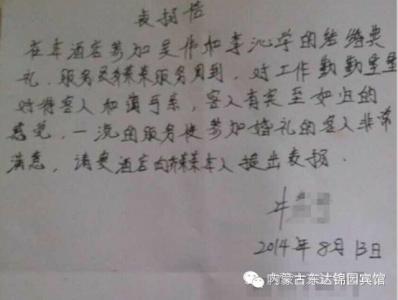 表扬信
在本酒店参加吴伟和李沁学的结婚典
礼，服务员赫莱莱服务周到，对工作勤勤垦垦
对待客人和蔼可亲，客人有宾至如归的
感觉，一流的服务使参加婚礼的客人非常
满意，请贵酒店对本人提出表扬．
牛
2014年8月13日
内蒙古东达锦园宾馆